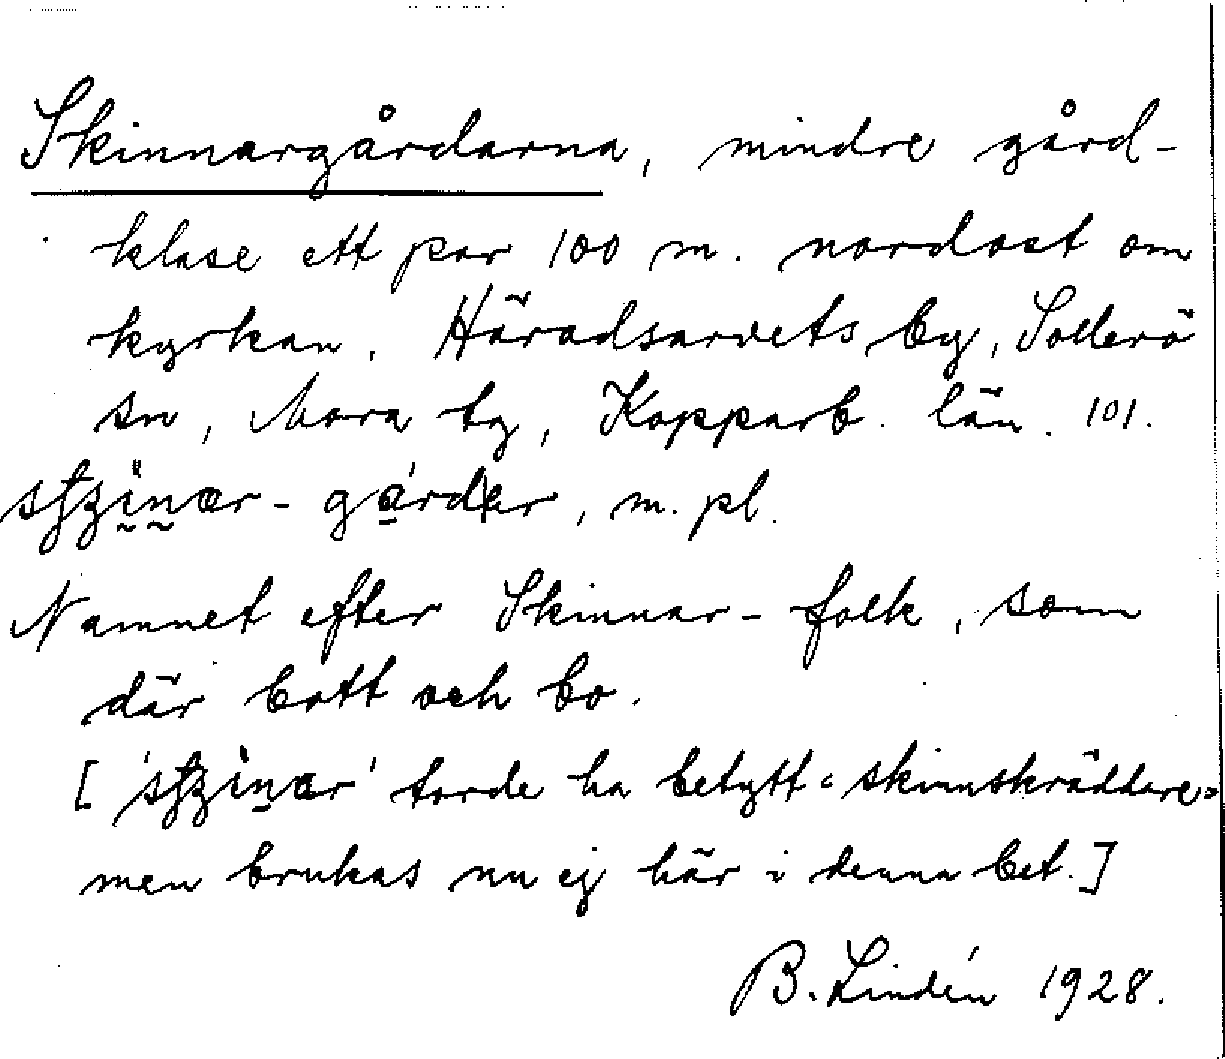 Skinnargårdarna, mindre gård-
klase ett par 100 m. nordost om
kyrkan. Häradsarvets by, Sollerö
sn, Mora tg, Kopparb. län. 101.
-gárder, m. pl.
Namnet efter Skinnar-folk, som
där bott och bo.
[ torde ha betytt "skinnskräddare"
men brukas nu ej här i denna bet.]
B. Lindén 1928.